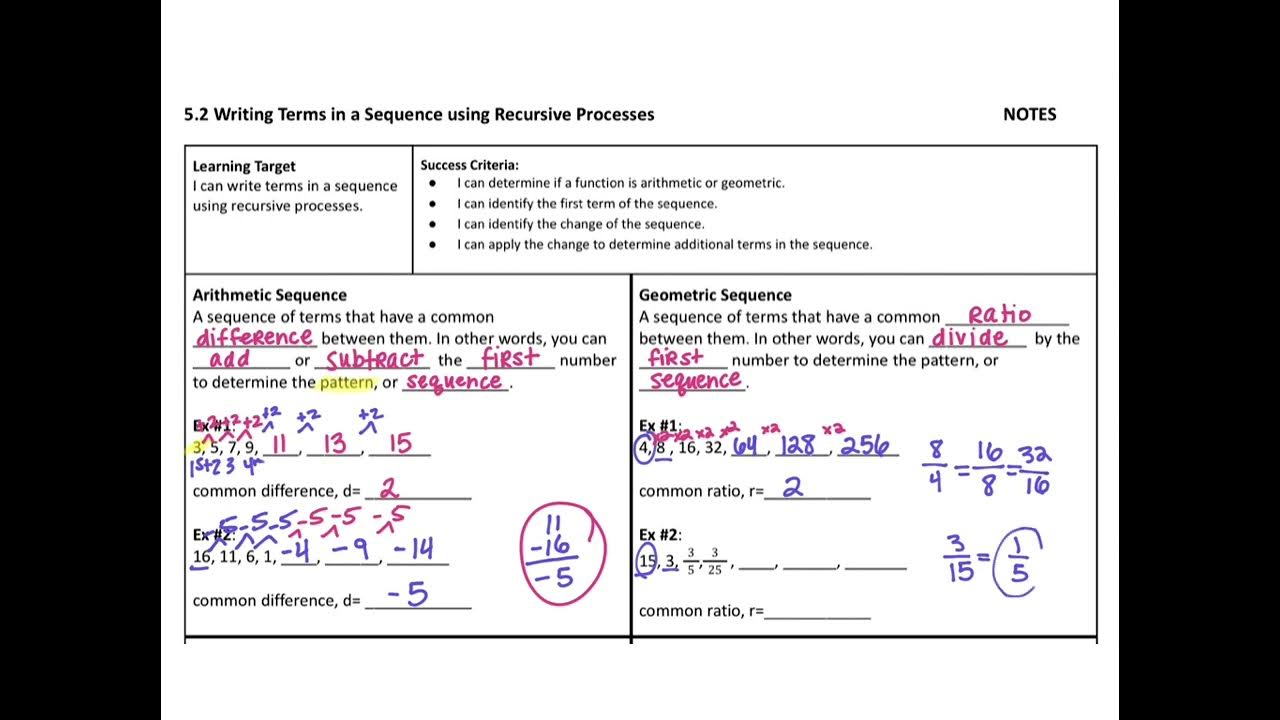 5.2 Writing Terms in a Sequence using Recursive Processes NOTES
Learning Target
I can write terms in a sequence
using recursive processes.
Success Criteria:
● I can determine if a function is arithmetic or geometric.
● I can identify the first term of the sequence.
● I can identify the change of the sequence.
● I can apply the change to determine additional terms in the sequence.
Arithmetic Sequence
A sequence of terms that have a common
difference between them. In other words, you can
add or subtract the first number
to determine the pattern, or sequence.
Ex #1:
+2 +2 +2 +2 +2 +2
3, 5, 7, 9, 11, 13, 15
1st 2 3 4th
common difference, d= 2
-5 -5 -5 -5 -5 -5
Ex #2:
16, 11, 6, 1, -4, -9, -14
common difference, d= -5
11
-16
-5
Geometric Sequence
A sequence of terms that have a common Ratio
between them. In other words, you can divide by the
first number to determine the pattern, or
sequence.
Ex #1:
x2 x2 x2 x2 x2 x2
4, 8, 16, 32, 64, 128, 256
common ratio, r= 2
8/4 = 16/8 = 32/16
Ex #2:
15, 3, 3/5, 3/25, ____, ______, _______
3/15 = 1/5
common ratio, r=____________